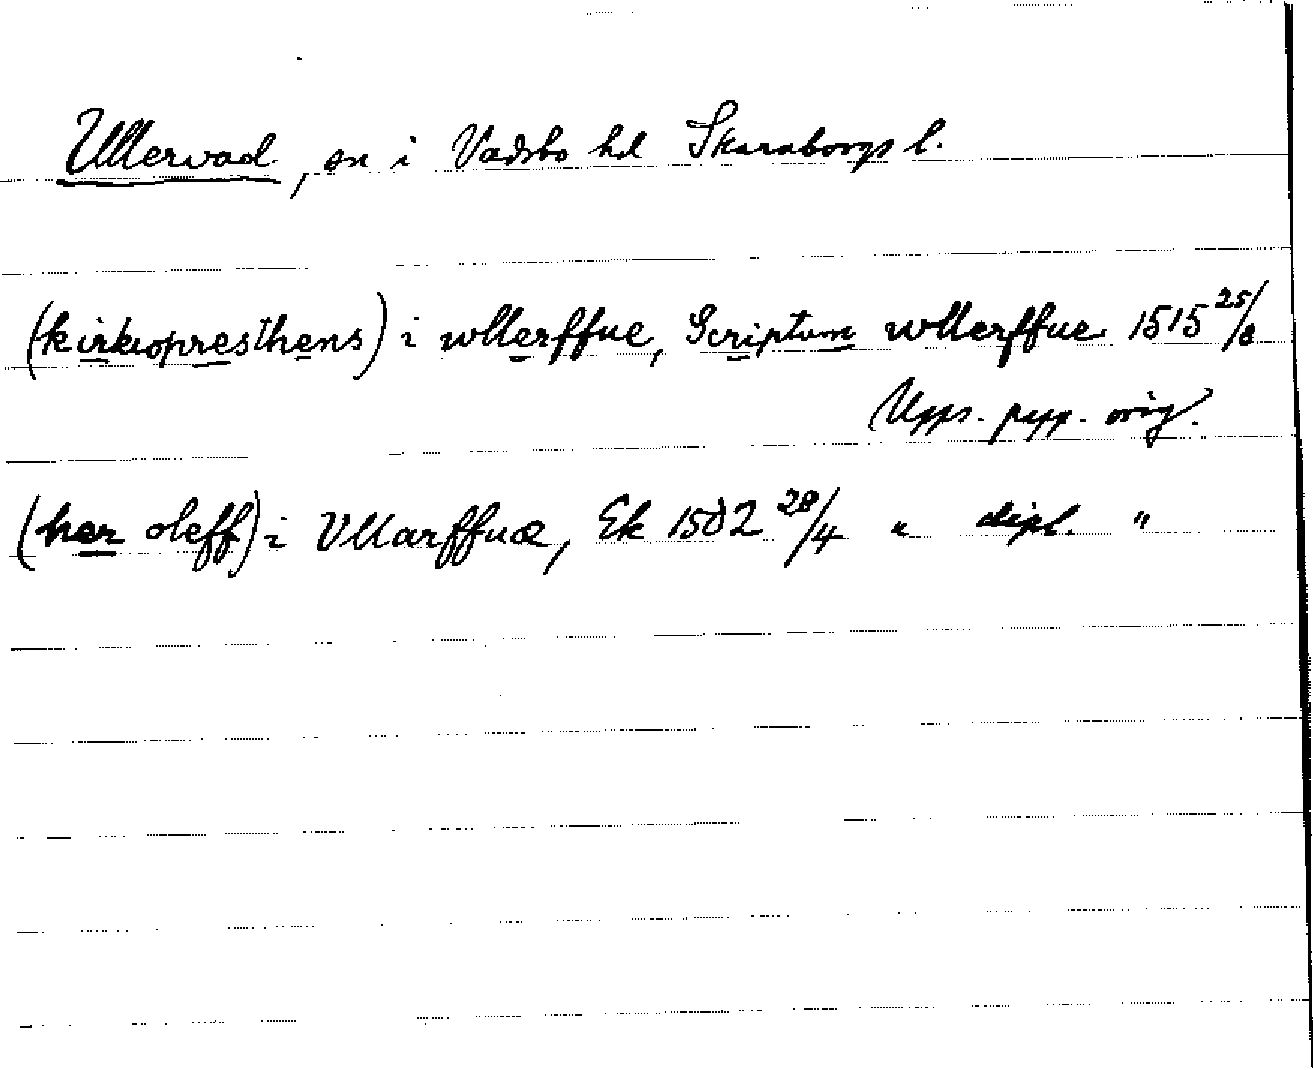 Ullervad, sn i Vadsbo hd Skaraborgs l.
(kirkiopresthens) i wllerffue, Scriptum wllerffue 1515 25/8
Upps. papp. orig.
(her oleff) i Vllarffuæ, Ek 1502 28/4 " dipl. "